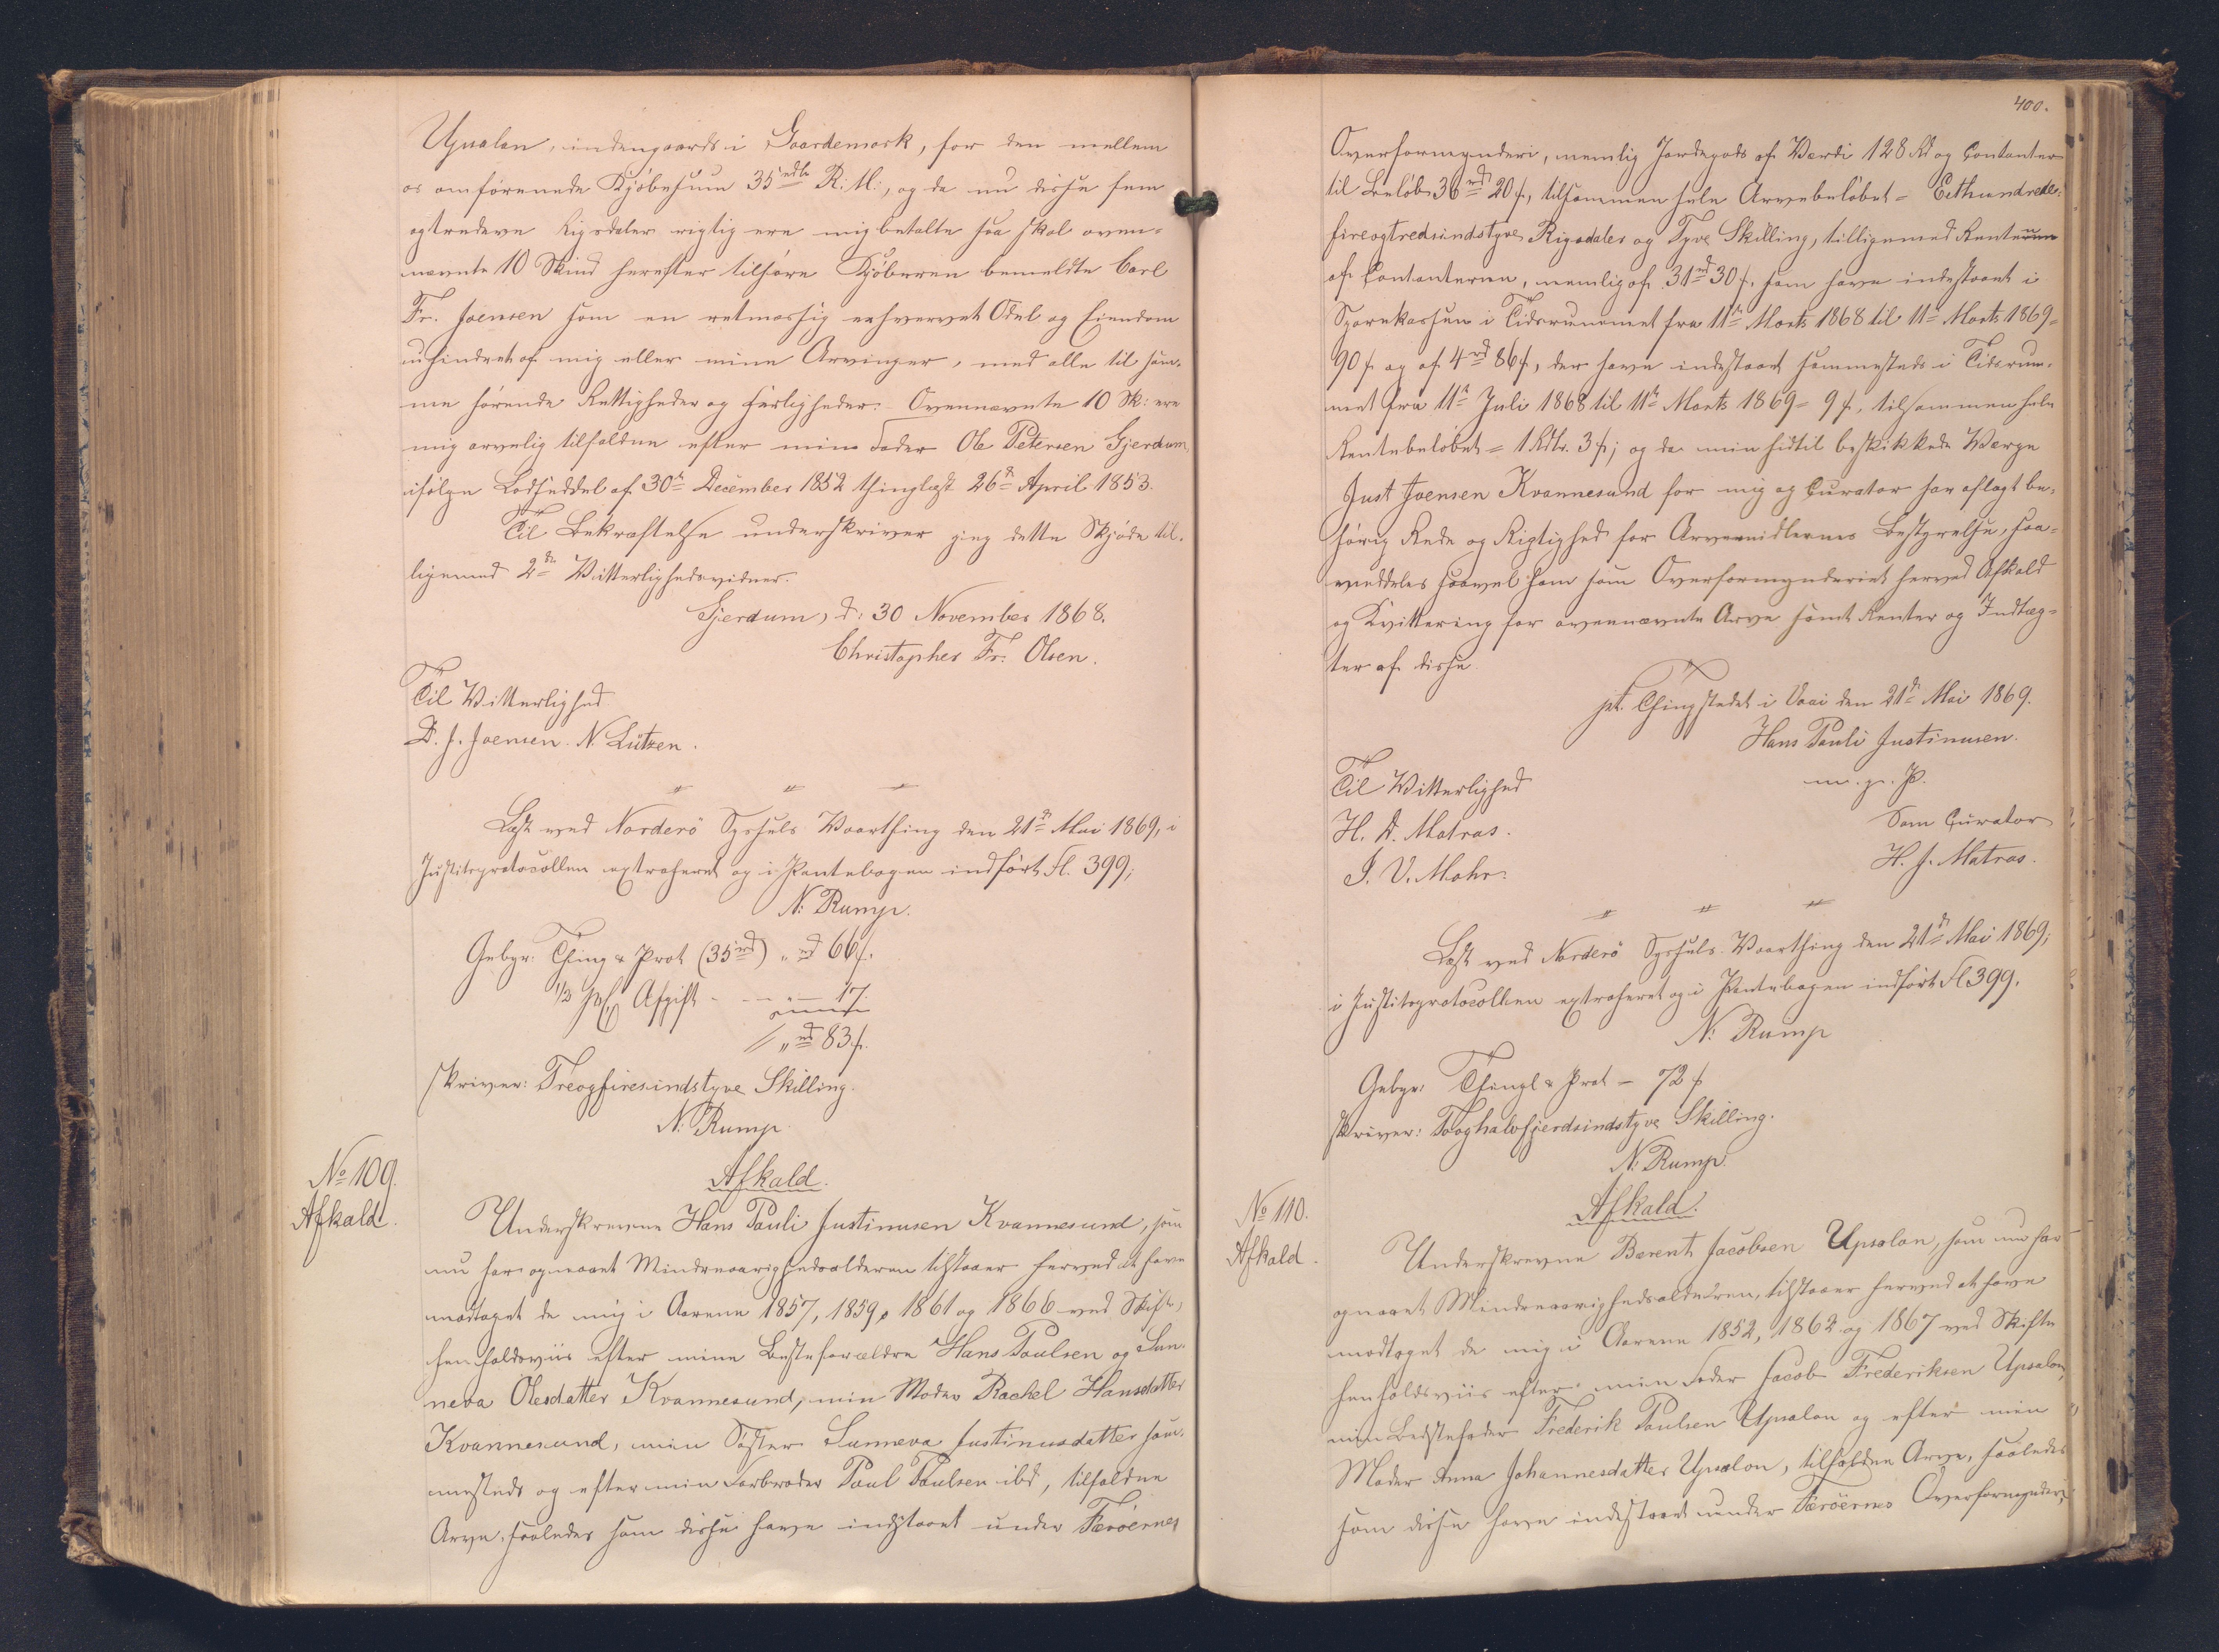 Upsalon, indengaards i Gaardemark, for den mellem
os omforenede Kjöbesum 35 rdlr R: M:, og da nu disse fem
ogtredeve Rigsdaler rigtig ere mig betalte saa skal oven-
nævnte 10 Skind herefter tilhøre Kjöberen bemeldte Carl
Fr. Joensen som en retmæssig erhvervet Odel og Eiendom
uhindret af mig eller mine Arvinger, med alle til sam-
me hörende Rettigheder og Herligheder. Ovennævnte 10 Sk: ere
mig arvelig tilfaldne efter min Fader Ole Petersen Gjerdum
ifölge Lodseddel af 30te December 1852 thinglæst 26de April 1853.
Til Bekræftelse underskriver jeg dette Skjöde til-
ligemed 2de Vitterlighedsvidner.
Gjerdum, d: 30 November 1868.
Christopher Fr: Olsen.
Til Vitterlighed
D. J. Joensen. N. Lützen.
Læst ved Norderö Syssels Vaarthing den 21de Mai 1869, i
Justitsprotocollen extraheret og i Pantebogen indfört Fl. 399;
N: Rump.
Gebyr: Thing & Prot (35 rd) " rd 66 s.
1/2 pCt Afgift - - - " — 17.
/ " rd 83 s.
skriver: Treogfiresindstyve Skilling.
N: Rump.
No 109.
Afkald.
Afkald.
Underskrevne Hans Pauli Justinusen Kvannesund, som
nu har opnaaet Mindreaarighedsalderen tilstaaer herved at have
modtaget de mig i Aarene 1857, 1859, 1861 og 1866 ved Skifte,
henholdsviis efter mine Bedsteforældre Hans Poulsen og Sun-
neva Olesdatter Kvannesund, min Moder Rachel Hansdatter
Kvannesund, min Söster Sunneva Justinusdatter sam-
mesteds og efter min Farbroder Poul Poulsen ibd, tilfaldne
Arve, saaledes som disse have indestaaet under Færöernes
400.
Overformynderi, nemlig Jordegods af Værdi 128 Rd og Contanter
til Beløb 36 rd 20 s, tilsammen hele Arvebelöbet = Eethundrede-
fireogtredsindstyve Rigsdaler og Tyve Skilling, tilligemed Renterne
af Contanterne, nemlig af 31 rd 30 s. som have indestaaet i
Sparekassen i Tidsrummet fra 11te Marts 1868 til 11te Marts 1869 =
90 s og af 4 rd 86 s, der have indestaaet sammesteds i Tidsrum-
met fra 11te Juli 1868 til 11te Marts 1869 = 9 s, tilsammen hele
Rentebelöbet = 1 Rdlr. 3 s; og da min hidtil beskikkede Værge
Just Joensen Kvannesund for mig og Curator har aflagt be-
hörig Rede og Rigtighed for Arvemidlernes Bestyrelse, saa
meddeles saavel ham som Overformynderiet herved Afkald
og Kvittering for ovennævnte Arve samt Renter og Indtæg-
ter af disse.
pt. Thingstedet i Vaai den 21de Mai 1869.
Hans Pauli Justinusen.
m. p. P.
Til Vitterlighed
Som Curator
H. D. Matras.
H. J. Matras.
J. V. Mohr.
Læst ved Norderö Syssels Vaarthing den 21de Mai 1869;
i Justitsprotocollen extraheret og i Pantebogen indfört Fl 399.
N: Rump
Gebyr: Thingl & Prot — 72 s
skriver: Tooghalvfjerdsindstyve Skilling.
N: Rump.
No 110.
Afkald.
Afkald.
Underskrevne Barent Jacobsen Upsalon, som nu har
opnaaet Mindreaarighedsalderen, tilstaaer herved at have
modtaget de mig i Aarene 1852, 1862 og 1867 ved Skifte
henholdsviis efter min Fader Jacob Frederiksen Upsalon,
min Bedstefader Frederik Poulsen Upsalon og efter min
Moder Anna Johannesdatter Upsalon, tilfaldne Arve, saaledes
som disse have indestaaet under Færöernes Overformynderi,